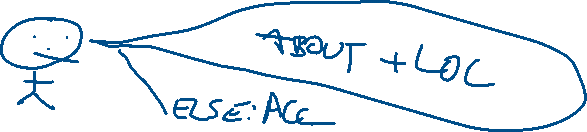 ABOUT + LOC
ELSE: ACC